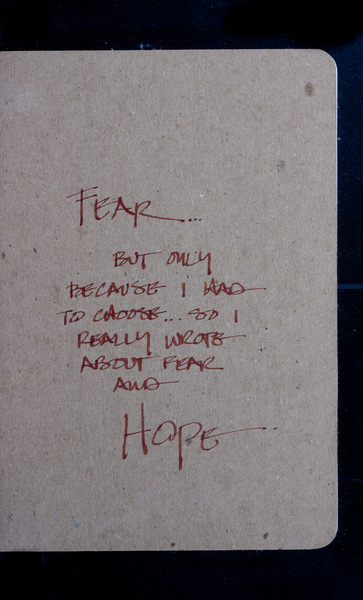 FEAR...
BUT ONLY
BECAUSE I HAD
TO CHOOSE... SO I
REALLY WROTE
ABOUT FEAR
AND
HOPE